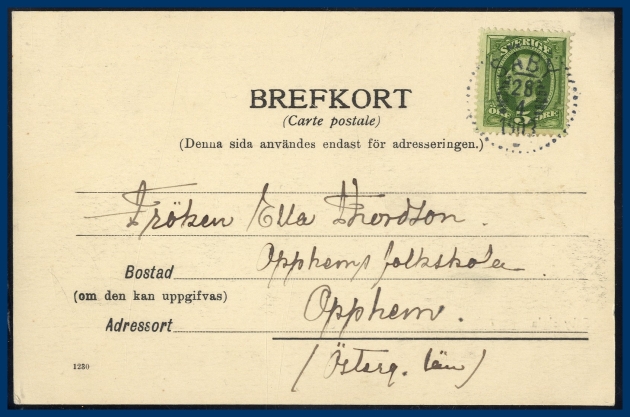 SVERIGE
ÅBY
28
4
1903
5
ÖRE
BREFKORT
(Carte postale)
(Denna sida användes endast för adresseringen.)
Fröken Ella Thordson.
Bostad Opphems folkskola
(om den kan uppgifvas)
Adressort Opphem.
(Österg. län)
1230